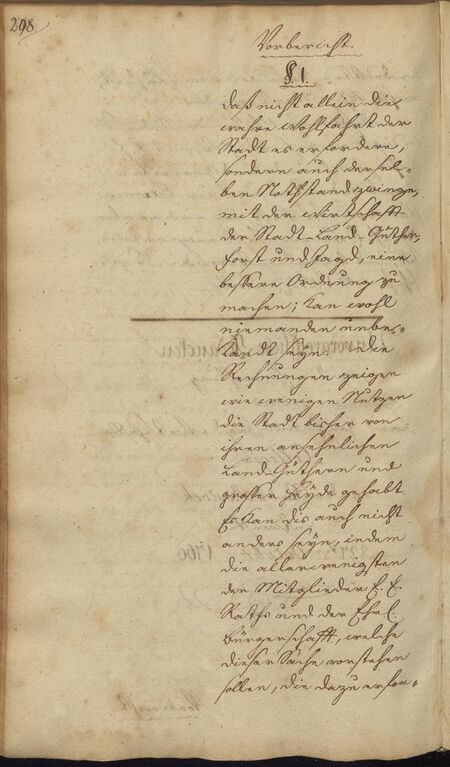 298.
Vorbericht.
§. 1.
Daß nicht allein die
wahre Wohlfahrt der
Stadt es erfordere,
sondern auch dersel-
ben Nothstand zwinge,
mit der Wirtschafft
der Stadt-Land-Güther,
Forst und Jagd, eine
bessere Ordnung zu
machen; kan wohl
niemanden unbe-
kandt seyn. Die
Rechnungen zeigen
wie wenigen Nutzen
die Stadt bisher von
ihren ansehnlichen
Land-Güthern und
grosser Heyde gehabt
Es kan dis auch nicht
anders seyn, indem
die allerwenigsten
der Mitglieder E. E.
Raths und der Ehrl.
Bürgerschafft, welche
dieser Sache vorstehen
sollen, die dazu erfor-